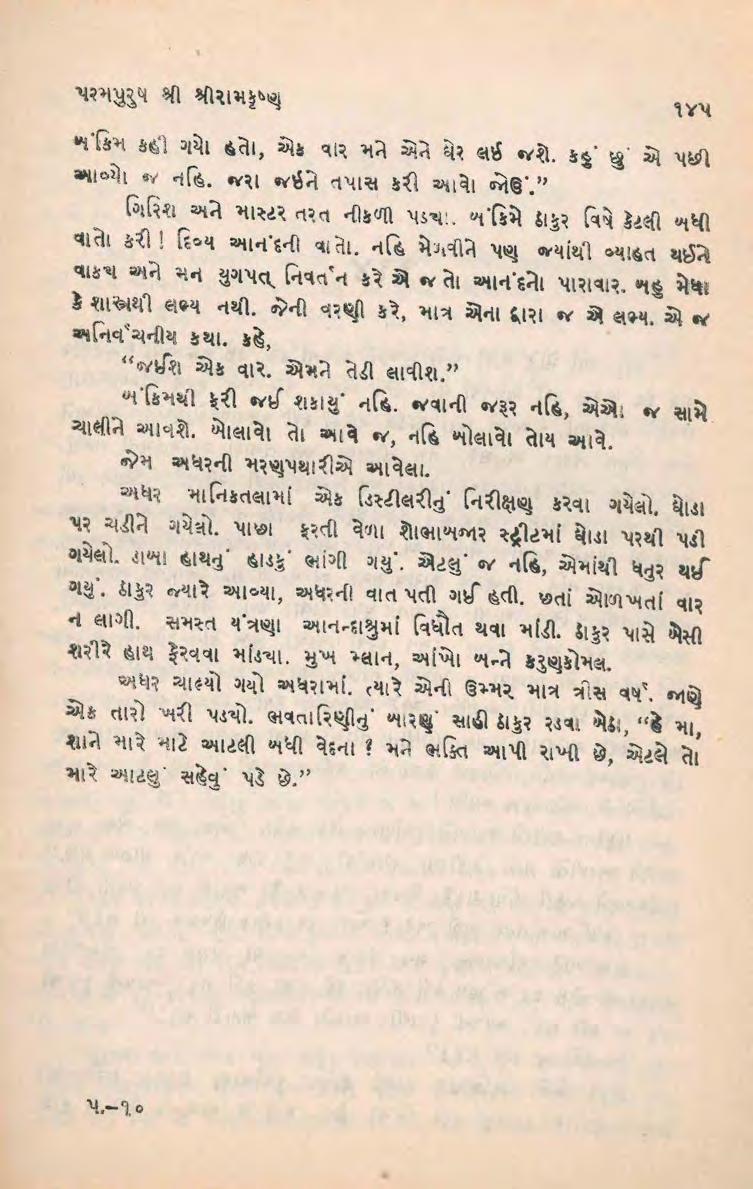 પરમપુરુષ શ્રી શ્રીરામકૃષ્ણ
૧૪૫
બંકિમ કહી ગયો હતો, એક વાર મને એને ઘેર લઈ જશે. કહું છું એ પછી
આવ્યો જ નહિ. જરા જઈને તપાસ કરી આવો જોઉં.”
ગિરિશ અને માસ્ટર તરત નીકળી પડ્યા. બંકિમે ઠાકુર વિષે કેટલી બધી
વાતો કરી! દિવ્ય આનંદની વાતો. નહિ મેળવીને પણ જ્યાંથી વ્યાહત થઈને
વાક્ય અને મન યુગપત્ નિવર્તન કરે એ જ તો આનંદનો પારાવાર. બહુ મેધા
કે શાસ્ત્રથી લભ્ય નથી. જેની વરણી કરે, માત્ર એના દ્વારા જ એ લભ્ય. એ જ
અનિર્વચનીય કથા. કહે,
“જઈશ એક વાર. એમને તેડી લાવીશ.”
બંકિમથી ફરી જઈ શકાયું નહિ. જવાની જરૂર નહિ, એઓ જ સામે
ચાલીને આવશે. બોલાવો તો આવે જ, નહિ બોલાવો તોય આવે.
જેમ અધરની મરણપથારીએ આવેલા.
અધર માનિકતલામાં એક ડિસ્ટીલરીનું નિરીક્ષણ કરવા ગયેલો. ઘોડા
પર ચડીને ગયેલો. પાછા ફરતી વેળા શોભાબજાર સ્ટ્રીટમાં ઘોડા પરથી પડી
ગયેલો. ડાબા હાથનું હાડકું ભાંગી ગયું. એટલું જ નહિ, એમાંથી ધનુર થઈ
ગયું. ઠાકુર જ્યારે આવ્યા, અધરની વાત પતી ગઈ હતી. છતાં ઓળખતાં વાર
ન લાગી. સમસ્ત યંત્રણા આનન્દાશ્રુમાં વિધૌત થવા માંડી. ઠાકુર પાસે બેસી
શરીરે હાથ ફેરવવા માંડ્યા. મુખ મ્લાન, આંખો બન્ને કરુણકોમલ.
અધર ચાલ્યો ગયો અધરામાં. ત્યારે એની ઉમ્મર માત્ર ત્રીસ વર્ષ. જાણે
એક તારો ખરી પડયો. ભવતારિણીનું બારણું સાહી ઠાકુર રડવા બેઠા, “હે મા,
શાને મારે માટે આટલી બધી વેદના? મને ભક્તિ આપી રાખી છે, એટલે તો
મારે આટલું સહેવું પડે છે.”
પ.–૧૦